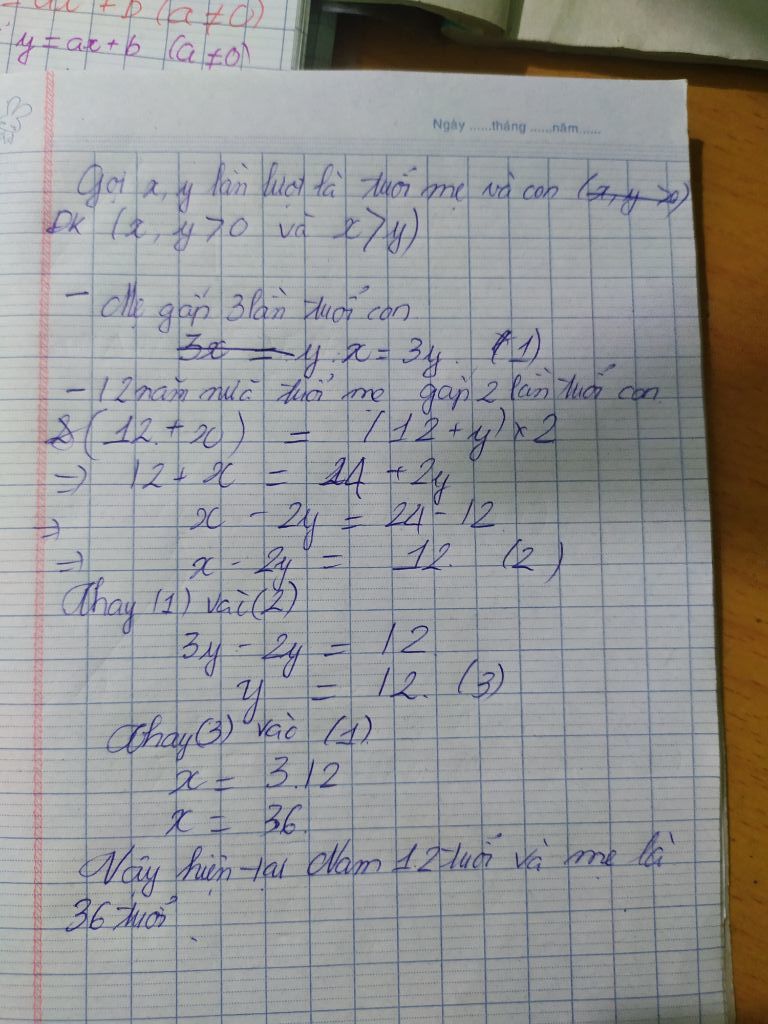 = ax + b (a ≠ 0)
y = ax + b (a ≠ 0)
Ngày ......tháng ......năm......
Gọi x, y lần lượt là tuổi mẹ và con (x, y >0)
ĐK (x, y > 0 và x > y)
- Mẹ gấp 3 lần tuổi con
3x = y x = 3y. (1)
- 12 năm nữa tuổi mẹ gấp 2 lần tuổi con
(12 + x) = (12 + y) × 2
=> 12 + x = 24 + 2y
=> x - 2y = 24 - 12
=> x - 2y = 12. (2)
Thay (1) vào (2)
3y - 2y = 12
y = 12. (3)
Thay (3) vào (1)
x = 3.12
x = 36.
Vậy hiện tại Nam 12 tuổi và mẹ là
36 tuổi.